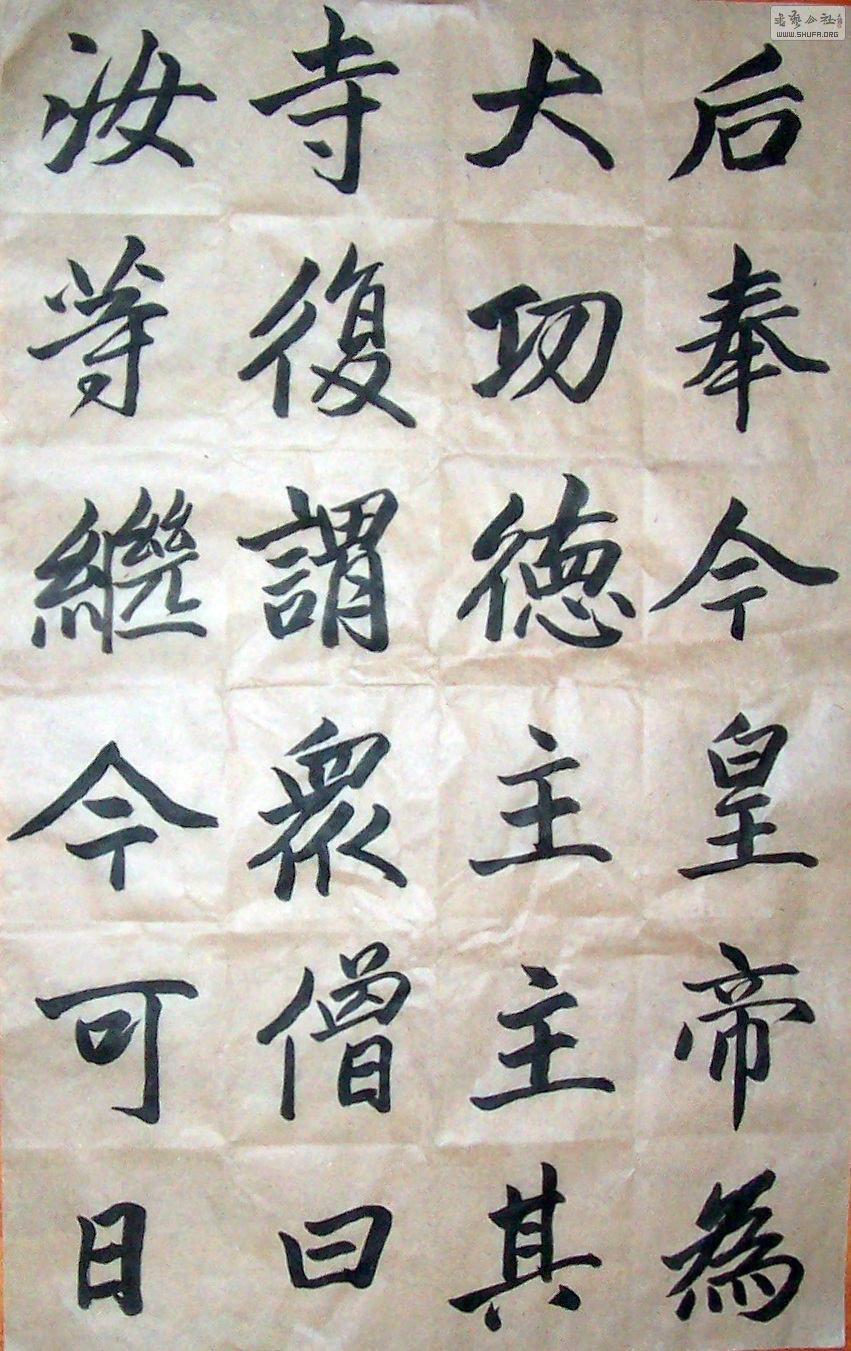 后奉今皇帝為
大功德主主其
寺復謂眾僧曰
汝等繼今可日
WWW.SHUFA.ORG